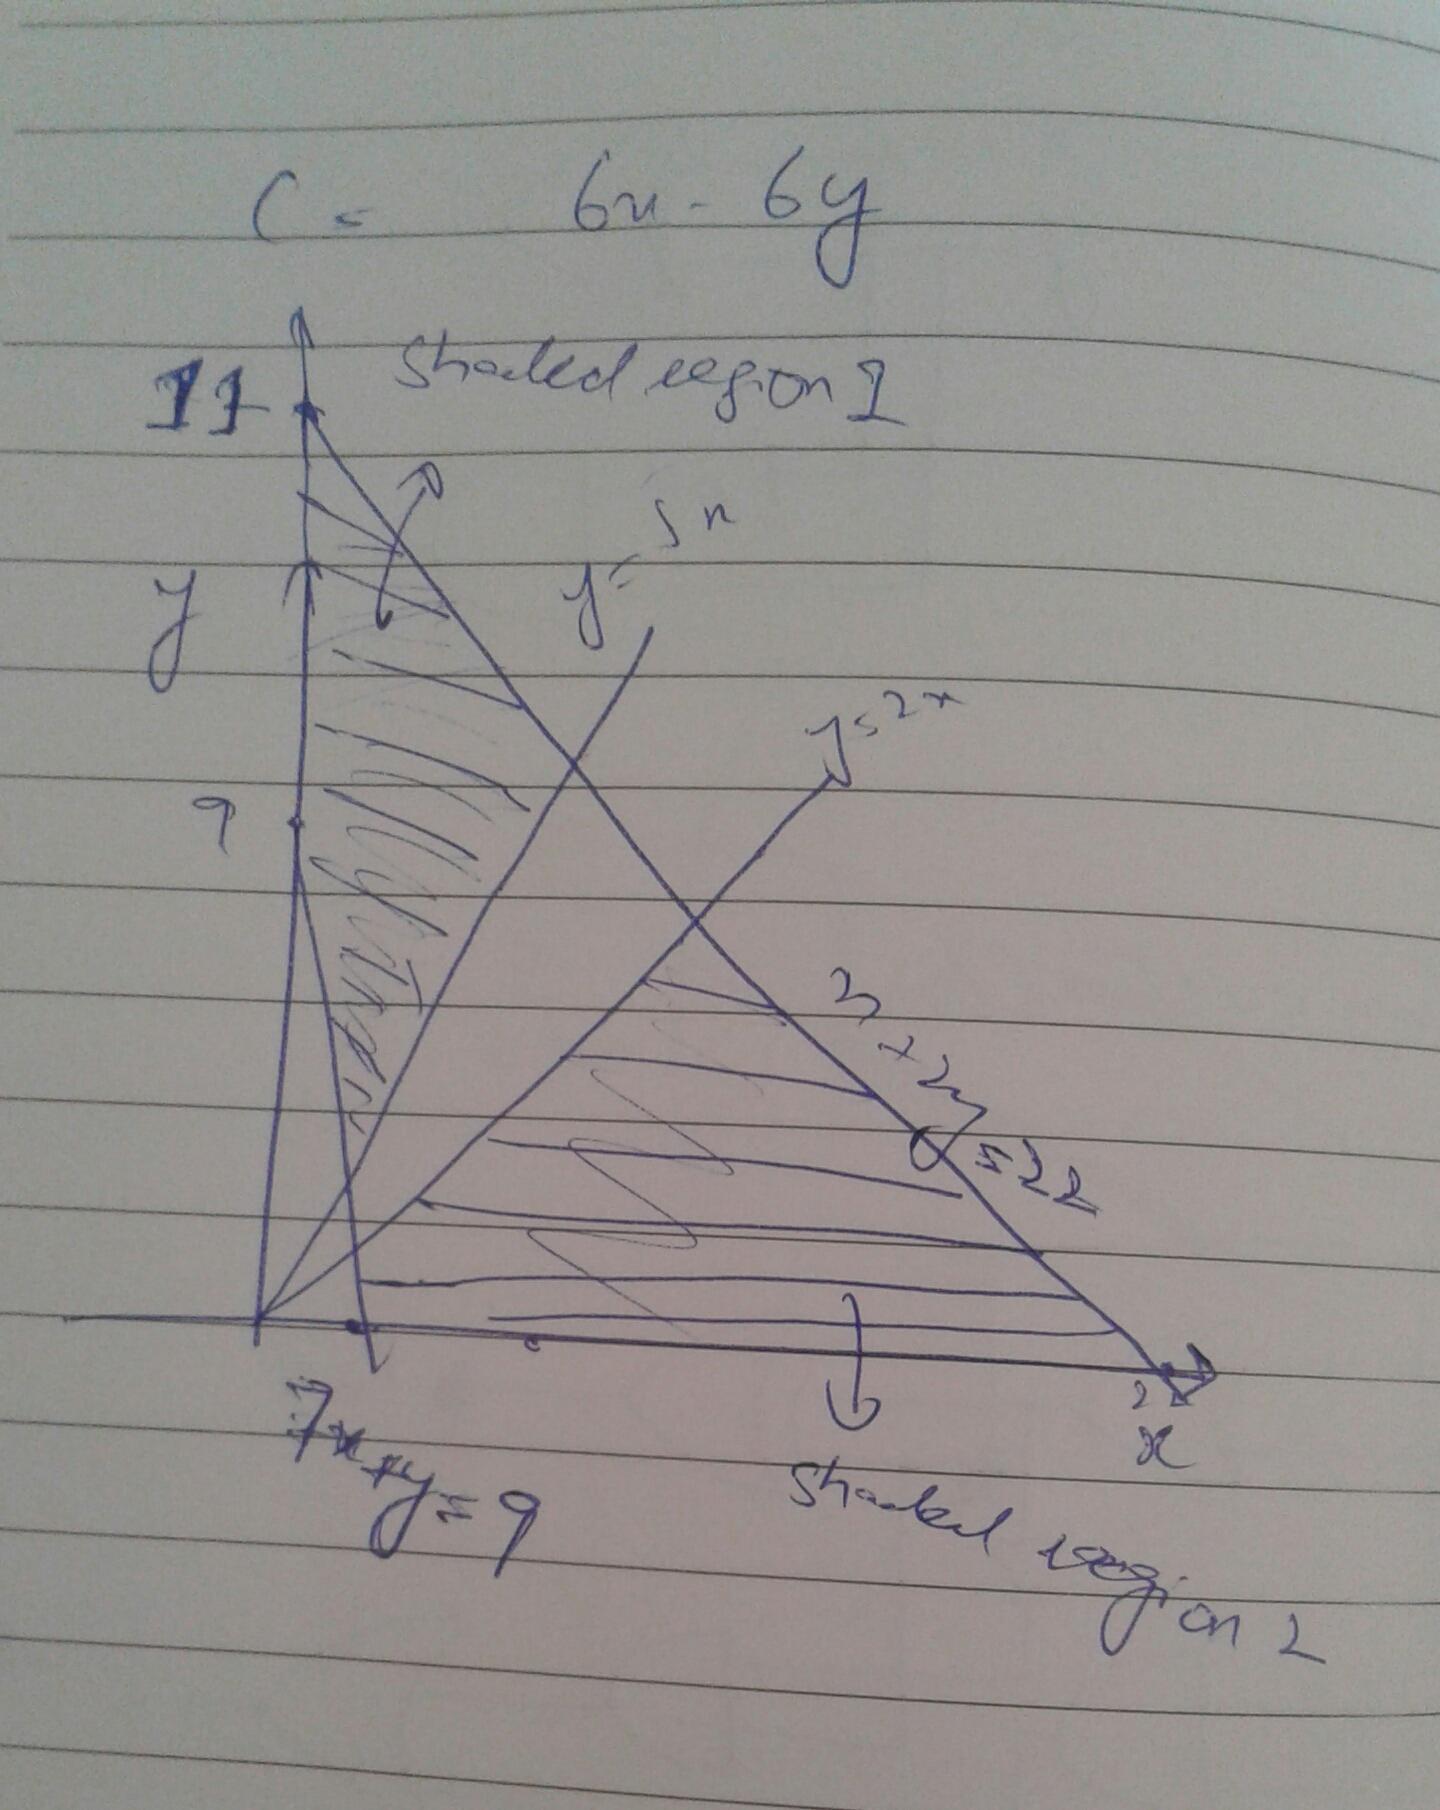 C = 6x - 6y
11
Shaded region 1
y = 5x
y
y = 2x
9
x + 2y = 22
x
7x + y = 9
Shaded region 2